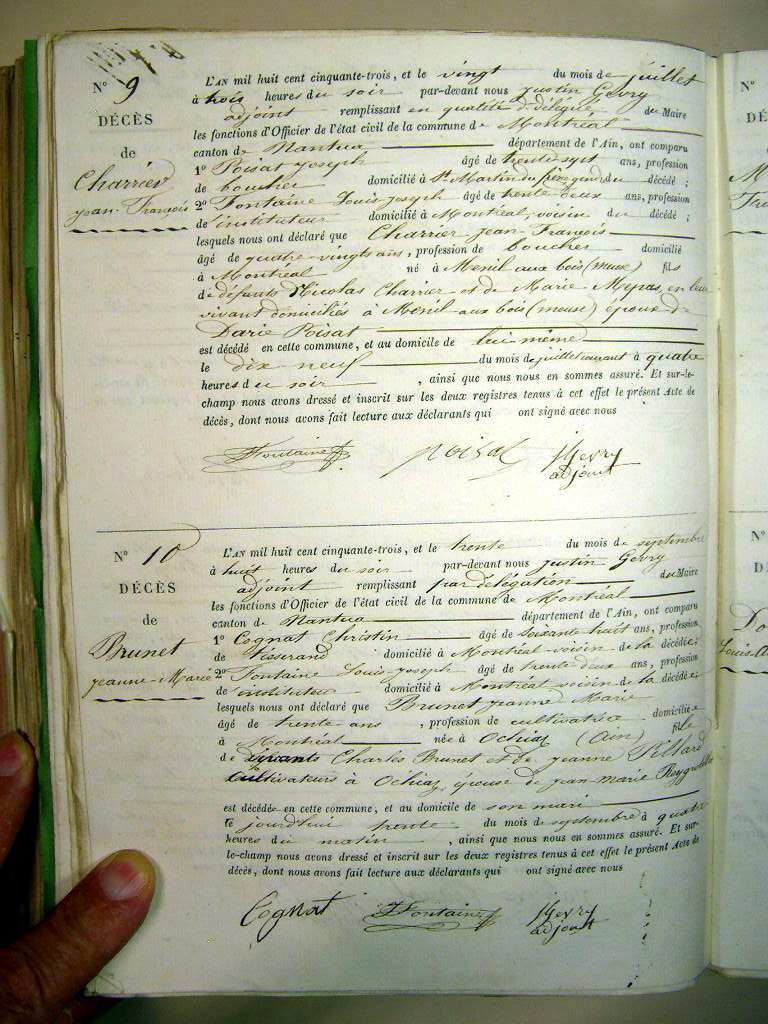 N° 9
DÉCÈS
de
Charrier
jean-François
L'AN mil huit cent cinquante-trois, et le vingt du mois de juillet
à trois heures du soir par-devant nous justin Gevry
adjoint remplissant en qualité de délégué du Maire
les fonctions d'Officier de l'état civil de la commune de Montréal
canton de Nantua département de l'Ain, ont comparu
1° Poisat joseph âgé de trente sept ans, profession
de boucher domicilié à St Martin du frêne gendre du décédé ;
2° Fontaine Louis joseph âgé de trente deux ans, profession
de instituteur domicilié à Montréal, voisin du décédé ;
lesquels nous ont déclaré que Charrier jean François
âgé de quatre-vingts ans, profession de boucher domicilié
à Montréal né à Menil aux bois (meuse) fils
de défunts Nicolas Charrier et de Marie Mepas, en leur
vivant domiciliés à Menil aux bois (meuse) époux de
Darie Poisat
est décédé en cette commune, et au domicile de lui même
le dix neuf du mois de juillet courant à quatre
heures du soir , ainsi que nous nous en sommes assuré. Et sur-le-
champ nous avons dressé et inscrit sur les deux registres tenus à cet effet le présent Acte de
décès, dont nous avons fait lecture aux déclarants qui ont signé avec nous
Fontaine Poisat jGevry
adjoint
N° 10
DÉCÈS
de
Brunet
jeanne-Marie
L'AN mil huit cent cinquante-trois, et le trente du mois de septembre
à huit heures du soir par-devant nous justin Gevry
adjoint remplissant par délégation du Maire
les fonctions d'Officier de l'état civil de la commune de Montréal
canton de Nantua département de l'Ain, ont comparu
1° Cognat Christin âgé de soixante huit ans, profession
de tisserand domicilié à Montréal voisin de la décédée ;
2° Fontaine Louis joseph âgé de trente deux ans, profession
de instituteur domicilié à Montréal voisin de la décédée ;
lesquels nous ont déclaré que Brunet jeanne Marie
âgé de trente ans , profession de cultivatrice domiciliée
à Montréal née à Ochiaz (Ain) fille
de vivants Charles Brunet et de jeanne Pillard
cultivateurs à Ochiaz, épouse de jean-marie
est décédée en cette commune, et au domicile de son mari
le jourd'hui trente du mois de septembre à quatre
heures du matin , ainsi que nous nous en sommes assuré. Et sur-
le-champ nous avons dressé et inscrit sur les deux registres tenus à cet effet le présent Acte de
décès, dont nous avons fait lecture aux déclarants qui ont signé avec nous
Cognat Fontaine jGevry
adjoint